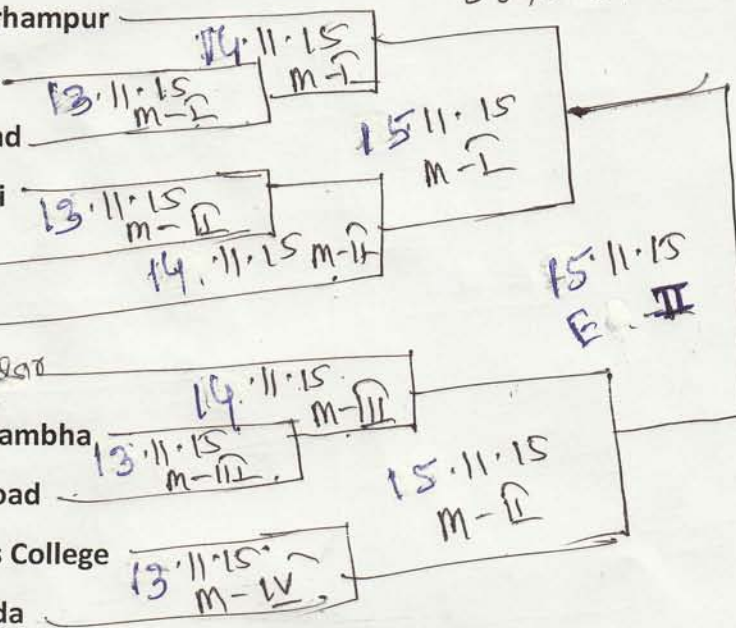 rhampur
14.11.15
m-I
13.11.15
m-I
nd
15 11.15
m-I
i
13.11.15
m-II
14.11.15 m-II
15.11.15
E II
14.11.15
m-III
ambha
13.11.15
m-III
oad
15.11.15
m-II
s College
13.11.15
m-IV
da